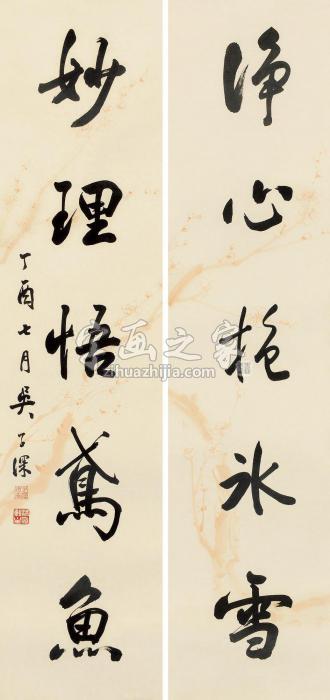 淨心抱冰雪
妙理悟鳶魚
丁酉七月吳子深
书画之家
zihuazhijia.com